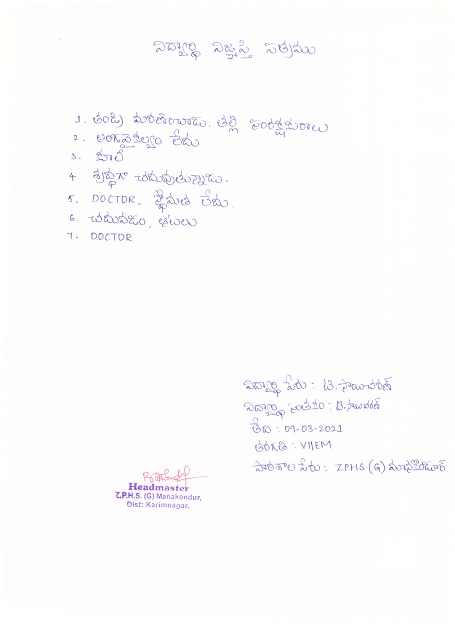 విద్యార్థి విజ్ఞప్తి పత్రము
1. తండ్రి మరణించాడు. తల్లి సంరక్షకురాలు
2. అంగవైకల్యం లేదు
3. కూలీ
4 శ్రద్ధగా చదువుతున్నాడు.
5. DOCTOR, స్థోమత లేదు.
6. చదువడం, ఆటలు
7. DOCTOR
విద్యార్థి పేరు : టి. సాయిచరణ్
విద్యార్థి సంతకం : B. సాయిచరణ్
తేది : 09-03-2021
తరగతి : VIIEM
పాఠశాల పేరు : ZPHS (G) మానకొండూర్
Headmaster
Z.P.H.S. (G) Manakondur,
Dist: Karimnagar.